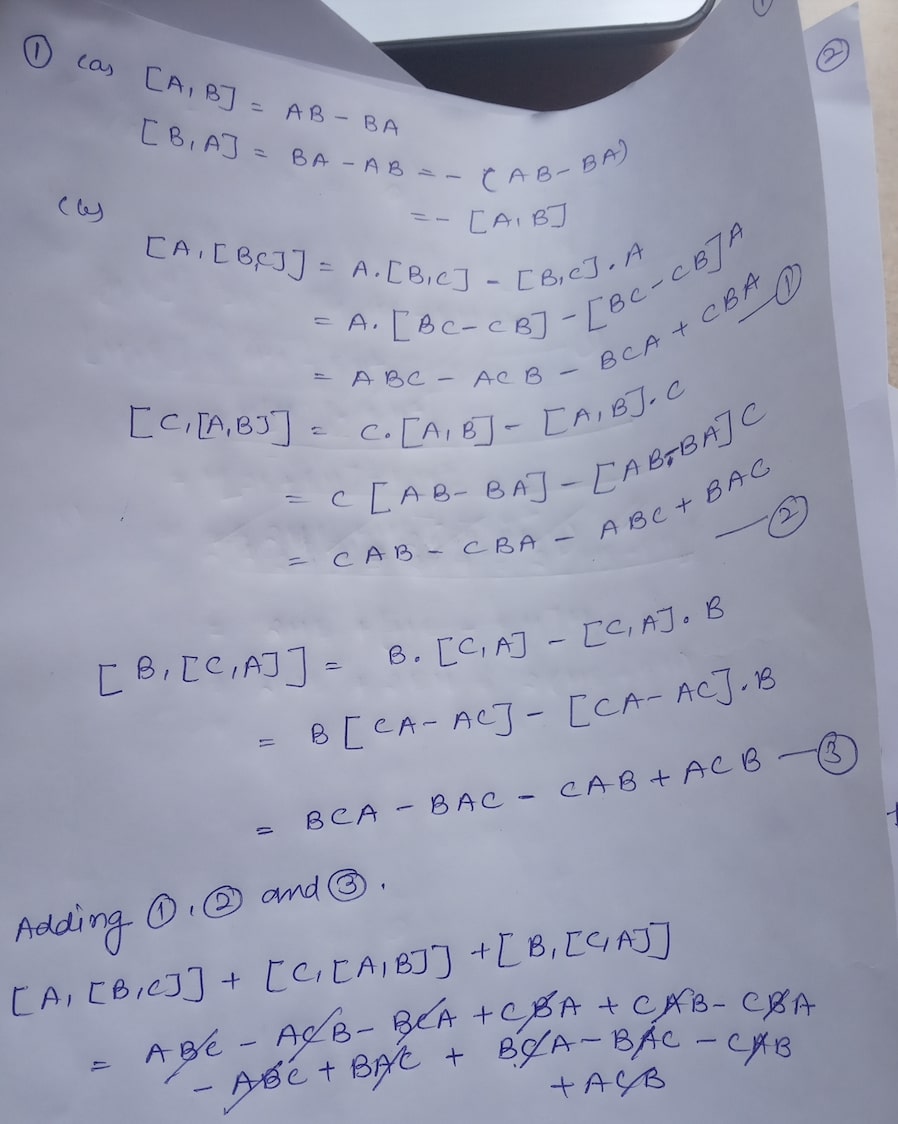 ① (a) [A, B] = AB - BA
[B, A] = BA - AB = - (AB - BA)
= - [A, B]
(b)
[A, [B,C]] = A.[B,C] - [B,C].A
= A.[BC - CB] - [BC - CB]A
= ABC - ACB - BCA + CBA —①
[C,[A,B]] = C.[A,B] - [A,B].C
= C[AB - BA] - [AB - BA]C
= CAB - CBA - ABC + BAC —②
[B,[C,A]] = B.[C,A] - [C,A].B
= B[CA - AC] - [CA - AC].B
= BCA - BAC - CAB + ACB —③
Adding ①, ② and ③.
[A, [B,C]] + [C,[A,B]] + [B,[C,A]]
= ABC - ACB - BCA + CBA + CAB - CBA
- ABC + BAC + BCA - BAC - CAB
+ ACB
②